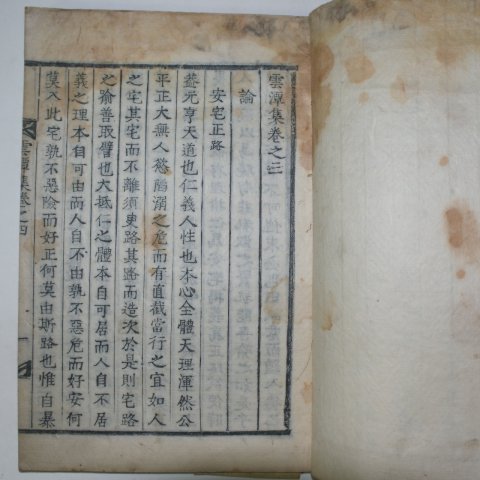 雲潭集卷之三
論
安宅正路
蓋元亨天道也仁義人性也本心全體天理渾然公
平正大無人慾陷溺之危而有直截當行之宜如人
之宅其宅而不離須臾路其路而造次於是則宅路
之喩善取譬也大抵仁之體本自可居而人自不居
義之理本自可由而人自不由孰不惡危而好安何
莫入此宅孰不惡險而好正何莫由斯路也惟自暴
雲潭集卷之四